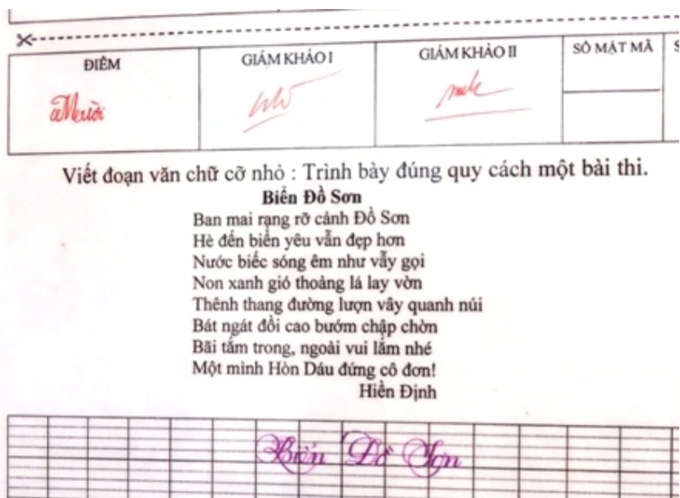 ĐIỂM
GIÁM KHẢO I
GIÁM KHẢO II
SỐ MẬT MÃ
S
Mười
Viết đoạn văn chữ cỡ nhỏ : Trình bày đúng quy cách một bài thi.
Biển Đồ Sơn
Ban mai rạng rỡ cảnh Đồ Sơn
Hè đến biển yêu vẫn đẹp hơn
Nước biếc sóng êm như vẫy gọi
Non xanh gió thoảng lá lay vờn
Thênh thang đường lượn vây quanh núi
Bát ngát đồi cao bướm chập chờn
Bãi tắm trong, ngoài vui lắm nhé
Một mình Hòn Dáu đứng cô đơn!
Hiền Định
Biển Đồ Sơn